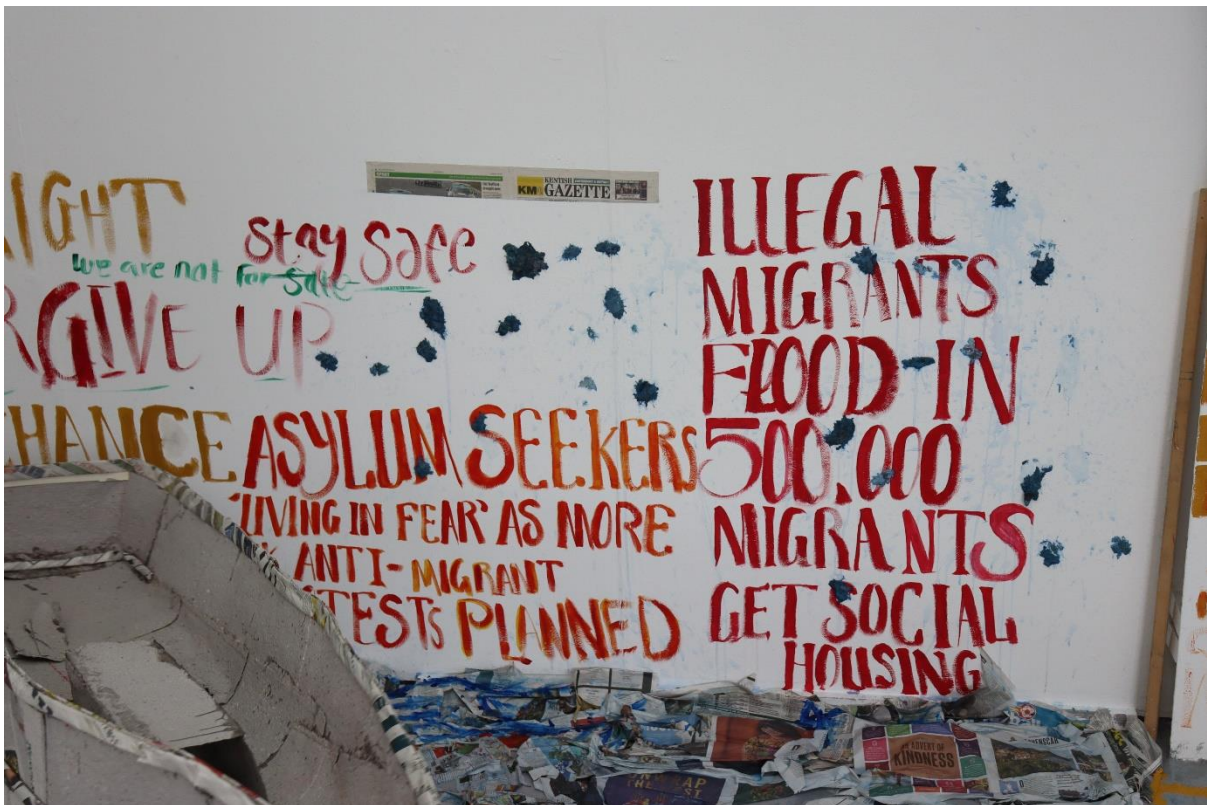 KM
KENTISH
GAZETTE
IGHT
stay safe
we are not for sale
GIVE UP
HANCE
ASYLUM SEEKERS
'LIVING IN FEAR' AS MORE
ANTI-MIGRANT
TESTS PLANNED
ILLEGAL
MIGRANTS
FLOOD IN
500,000
MIGRANTS
GET SOCIAL
HOUSING
AN ADVENT OF
KINDNESS